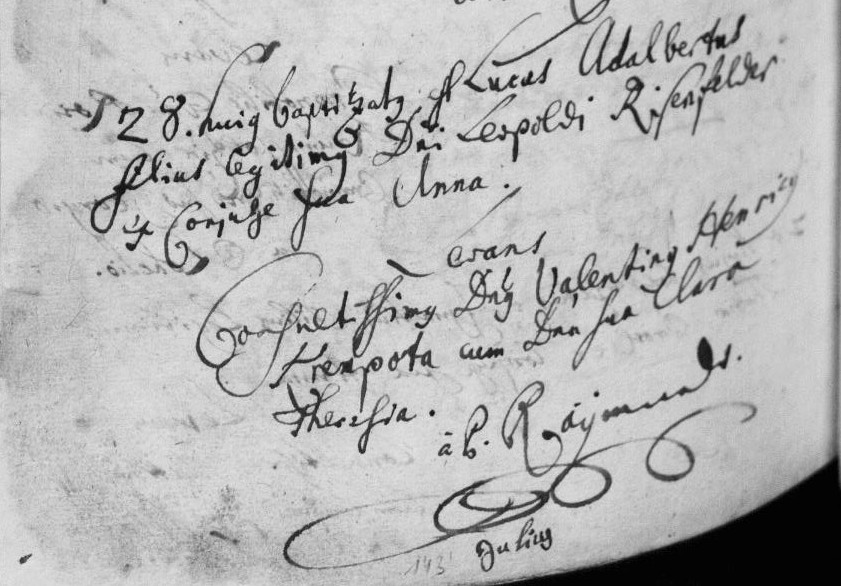 28. huig baptizatg est Lucas Adalbertus
filius legitimg Dni Leopoldi Risenfelder
et Conjuge sua Anna.
Levans
Consultissimg Dng Valenting Henricg
Frenpota cum Dna sua Clara
Theresia.
à P. Raymundo.
Julius
143